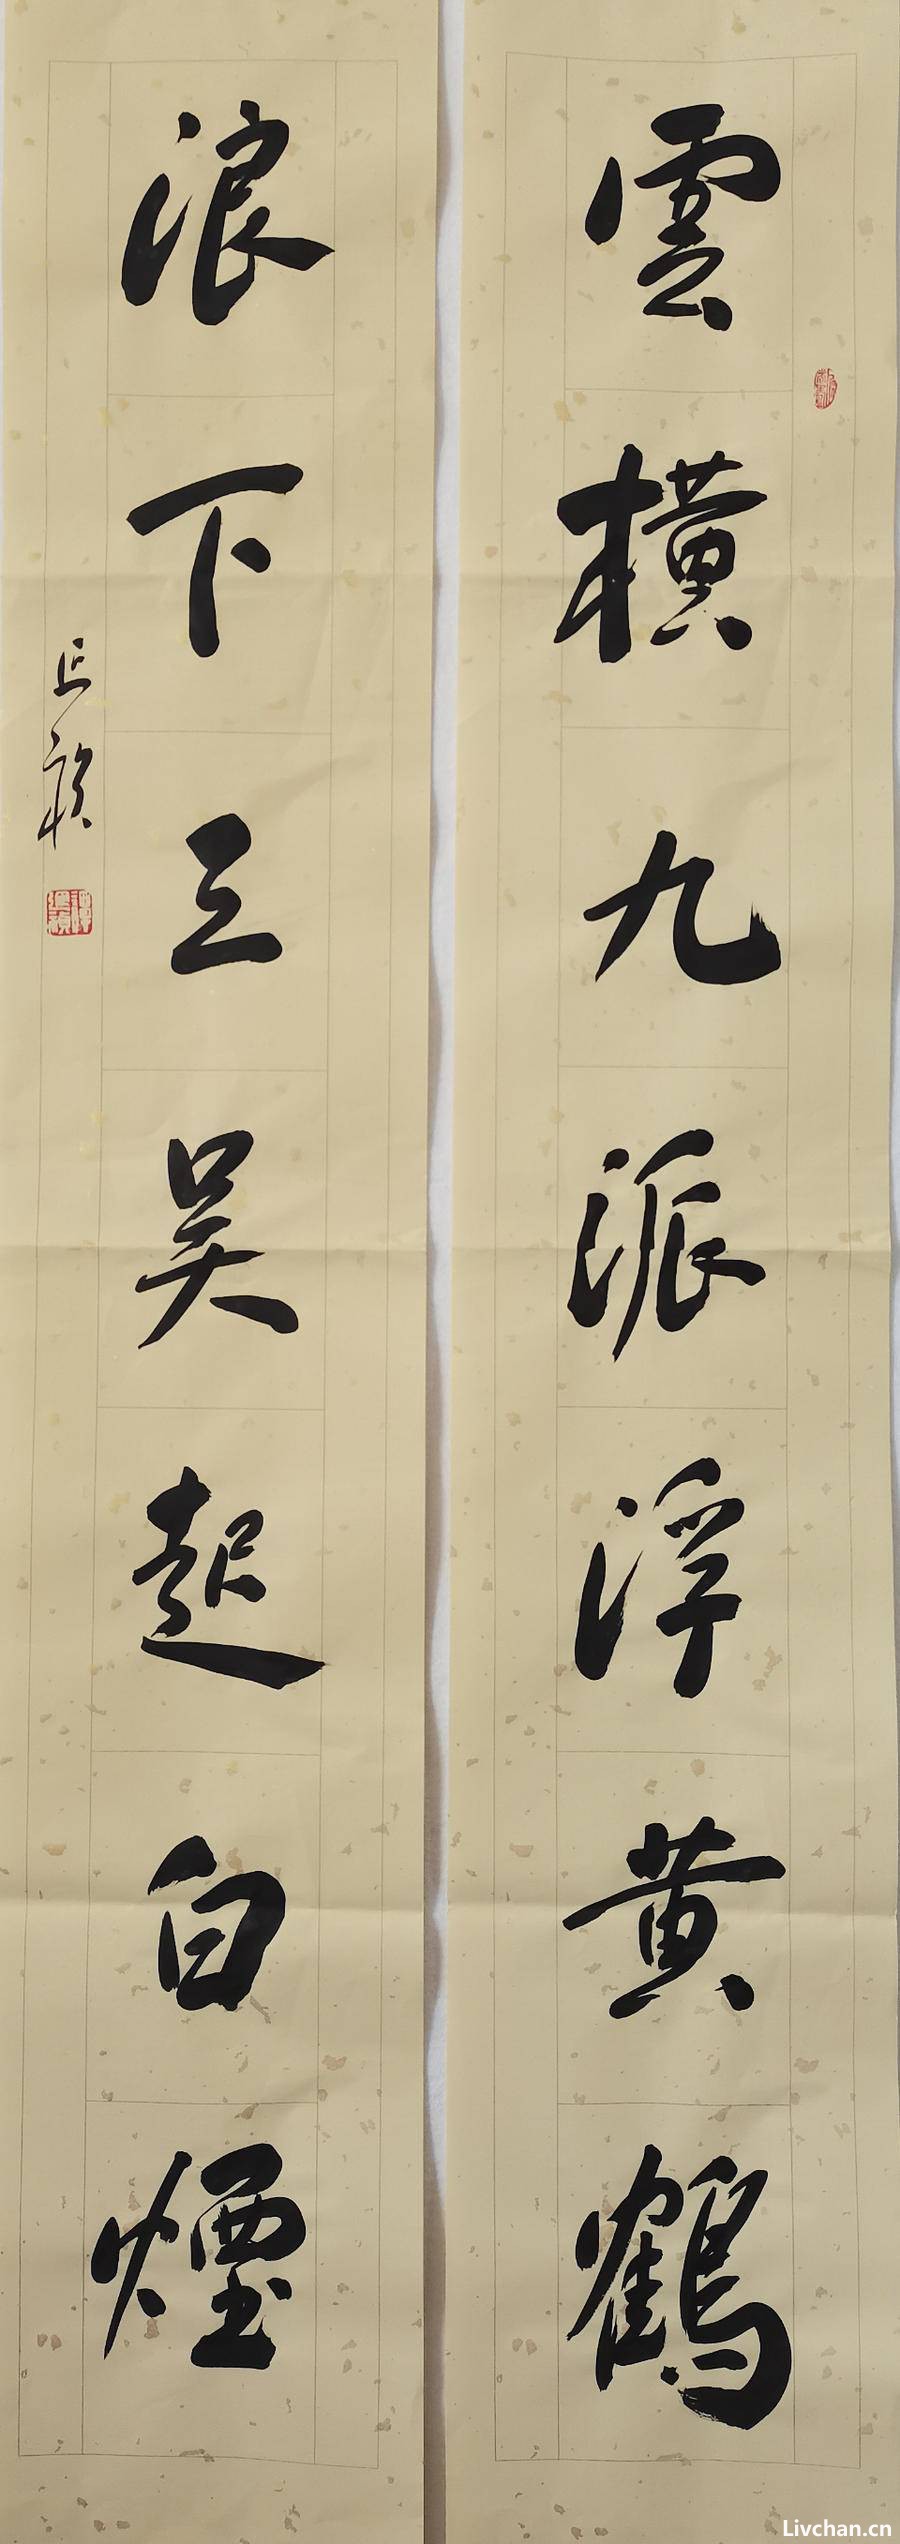 雲橫九派浮黃鶴
浪下三吴起白煙
Livchan.cn